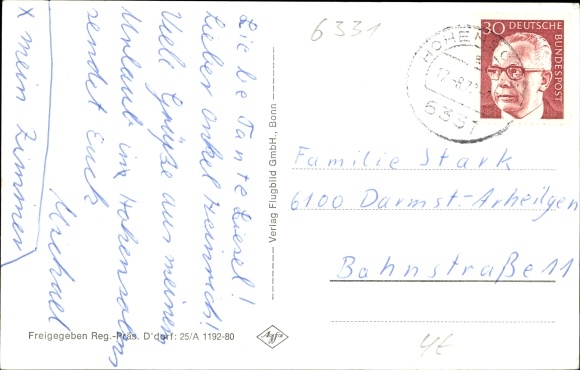 Liebe Tante Liesel!
Lieber Onkel Heinrich!
Viele Grüße aus meinem
Urlaub im Hohensolms
sendet Euch
Michael
X mein Zimmer
Verlag Flugbild GmbH., Bonn
Freigegeben Reg.-Präs. D'dorf: 25/A 1192-80
Agfa
6331
30 DEUTSCHE BUNDESPOST
6331
Familie Stark
6100 Darmst.-Arheilgen
Bahnstraße 11
4E